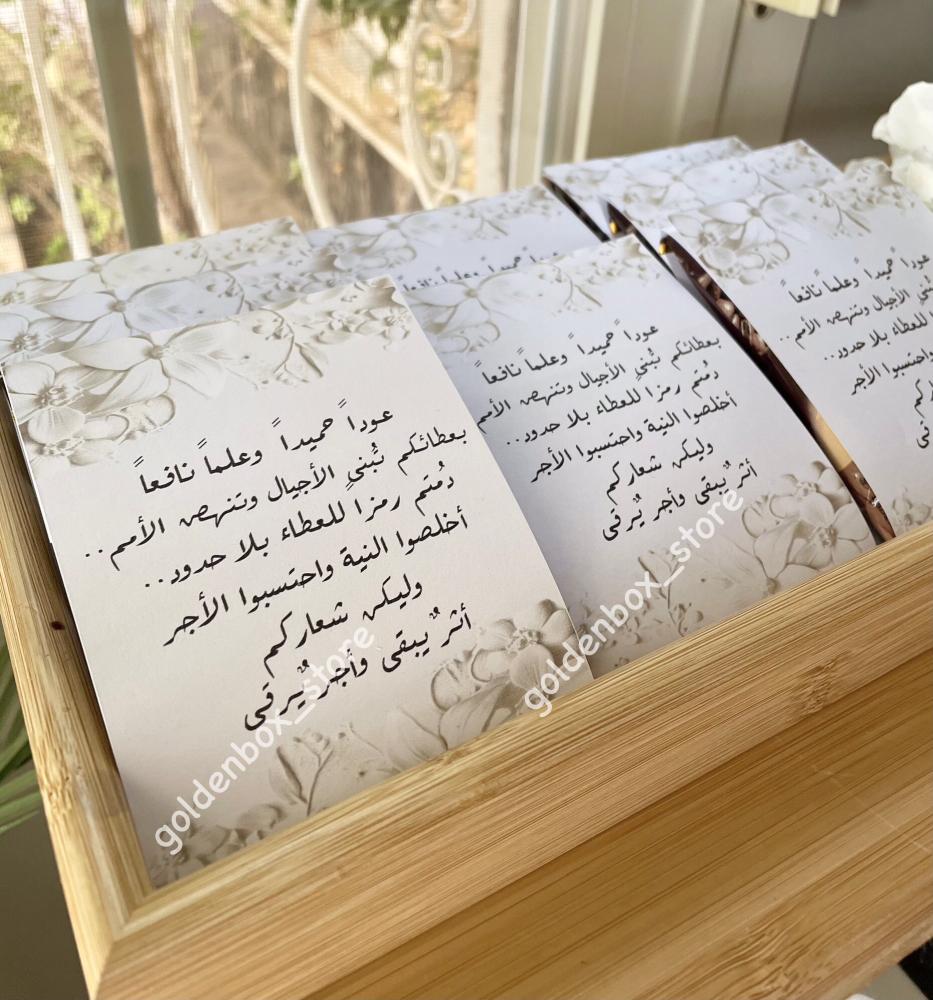 عوداً حميداً وعلماً نافعاً
بعطائكم تُبنى الأجيال وتنهض الأمم..
دُمتم رمزا للعطاء بلا حدود..
أخلصوا النية واحتسبوا الأجر
وليكن شعاركم
أثرٌ يبقى وأجرٌ يرقى
goldenbox_store
عوداً حميداً وعلماً نافعاً
بعطائكم تُبنى الأجيال وتنهض الأمم
دُمتم رمزا للعطاء بلا حدود..
أخلصوا النية واحتسبوا الأجر
وليكن شعاركم
أثرٌ يبقى وأجرٌ يرقى
goldenbox_store
عوداً حميداً وعلماً نافعاً
الأجيال وتنهض الأمم..
للعطاء بلا حدود..
واحتسبوا الأجر